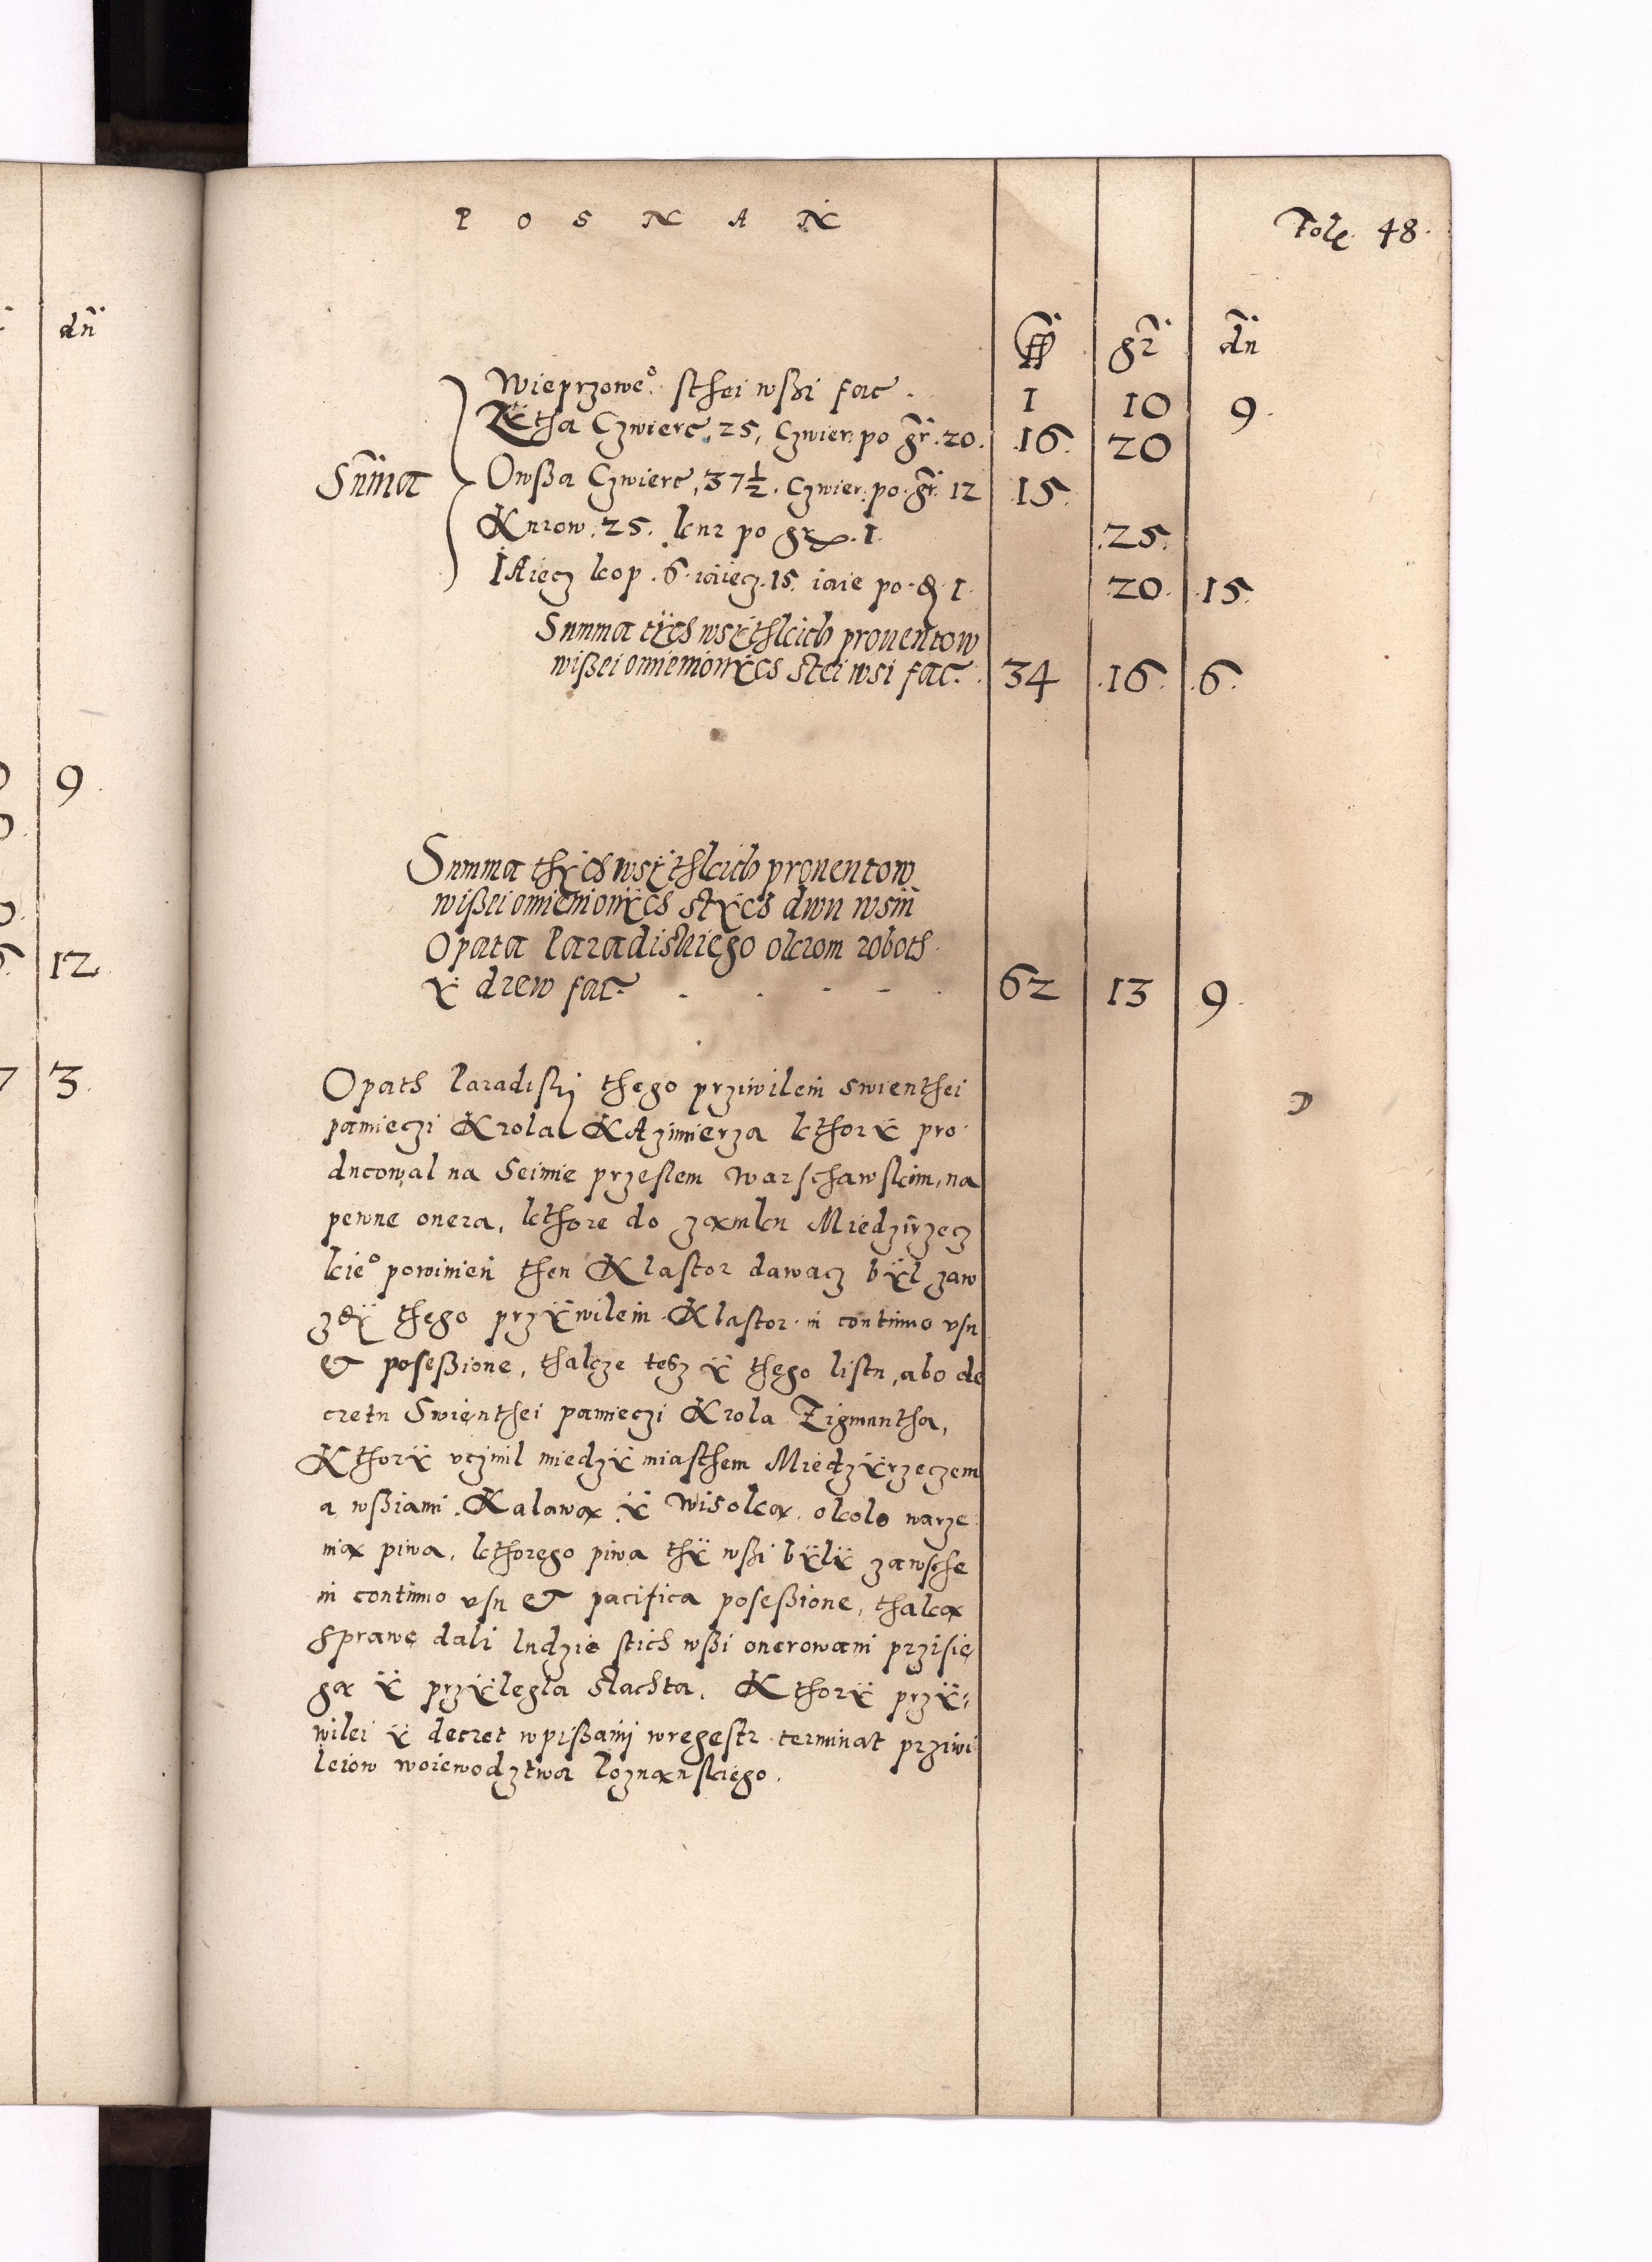 dñ
9
12
3
P O S N A Ń
Fole 48.
ff gr dn
Wieprzowe° sthei wßi fac. 1 10 9.
Zÿtha Czwierc, 25, Czwier: po gr. 20. 16. 20
Sūma
Owßa Czwierc, 37½. Czwier: po. gr. 12 15.
Kurow. 25. kur po gr. 1. 25.
IAiecz kop. 6. iaiecz. 15. iaie po. ₰ 1. 20. 15.
Summa tÿch wsÿthkich prouentow
wißei omienionÿch stei wsi fac. 34 16. 6.
Summa thÿch wsÿthkich prouentow
wißei omienionÿch stÿch dwu wsiu
Opata Paradiskiego okrom roboth
ÿ drew fac. 62 13 9.
Opath Paradiski thego przÿwileiu swienthei
pamieczi Krola KAzimierza kthorÿ pro
ducowal na Seimie przeslem Warschawskim, na
pewne onera, kthore do zamku Miedzirzecz
kie° powinien then Klastor dawacz bÿl zaw
zdÿ thego przÿwileiu Klastor in continuo vsu
& poseßione, thakze tesz ÿ thego listu, abo de
cretu Swienthei pamieczi Krola Zigmuntha,
Kthorÿ vczinil miedzÿ miasthem Miedzÿrzeczem
a wßiami Kalawa ÿ Wisoka, okolo warze
nia piwa, kthorego piwa thÿ wßi bÿlÿ zawsche
in continuo vsu & pacifica poseßione, thaka
sprawe dali ludzie stich wßi onerowani przisie
ga ÿ przÿlegla slachta. Kthorÿ przÿ=
wilei ÿ decret wpißani wregestr terminat przÿwi
leiow woiewodztwa Poznanskiego.